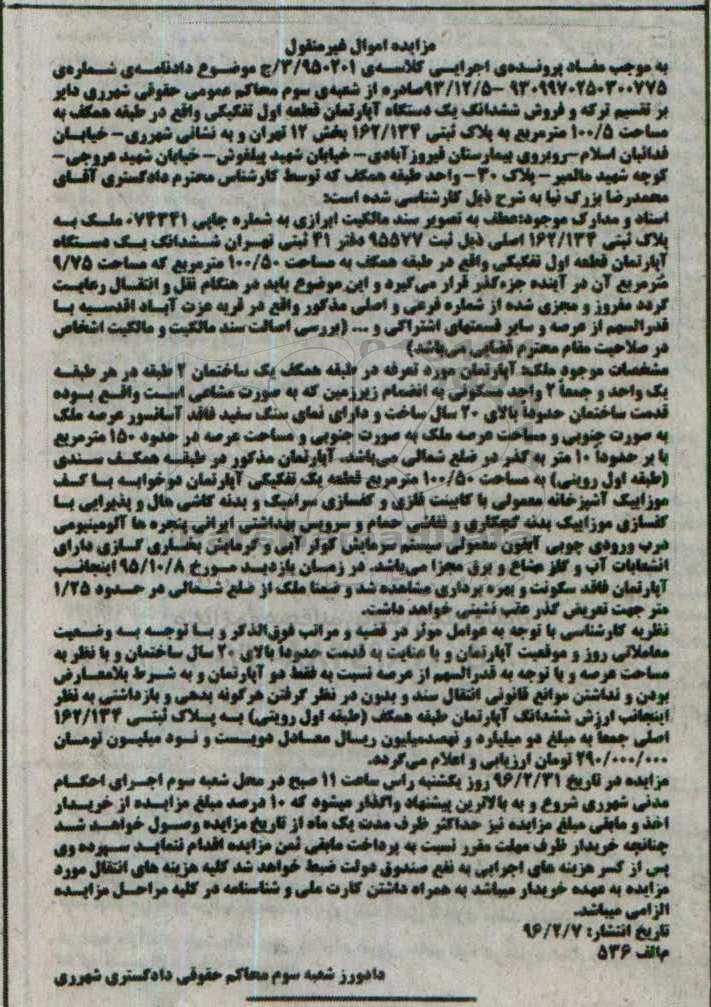 مزایده اموال غیرمنقول
به موجب مفاد پرونده‌ی اجرایی کلاسه‌ی ۹۵۰۲۰۱/۳/ج موضوع دادنامه‌ی شماره‌ی
۹۳۰۹۹۷۰۲۵۰۳۰۰۷۷۵ -۹۳/۱۲/۵صادره از شعبه‌ی سوم محاکم عمومی حقوقی شهرری دایر
بر تقسیم ترکه و فروش ششدانگ یک دستگاه آپارتمان قطعه اول تفکیکی واقع در طبقه همکف به
مساحت ۱۰۰/۵ مترمربع به پلاک ثبتی ۱۶۲/۱۳۴ بخش ۱۲ تهران و به نشانی شهرری- خیابان
فدائیان اسلام-روبروی بیمارستان فیروزآبادی- خیابان شهید پیلغوش- خیابان شهید عروجی-
کوچه شهید مالمیر- پلاک ۳۰- واحد طبقه همکف که توسط کارشناس محترم دادگستری آقای
محمدرضا بزرگ نیا به شرح ذیل کارشناسی شده است:
اسناد و مدارک موجود:عطف به تصویر سند مالکیت ابرازی به شماره چاپی ۰۷۴۳۴۱ ملک به
پلاک ثبتی ۱۶۲/۱۳۴ اصلی ذیل ثبت ۹۵۵۷۷ دفتر ۴۱ ثبتی تهران ششدانگ یک دستگاه
آپارتمان قطعه اول تفکیکی واقع در طبقه همکف به مساحت ۱۰۰/۵۰ مترمربع که مساحت ۹/۷۵
مترمربع آن در آینده جزء گذر قرار می‌گیرد و این موضوع باید در هنگام نقل و انتقال رعایت
گردد مفروز و مجزی شده از شماره فرعی و اصلی مذکور واقع در قریه عزت آباد اقدسیه با
قدرالسهم از عرصه و سایر قسمتهای اشتراکی و ... (بررسی اصالت سند مالکیت و مالکیت اشخاص
در صلاحیت مقام محترم قضایی می‌باشد)
مشخصات موجود ملک: آپارتمان مورد تعرفه در طبقه همکف یک ساختمان ۲ طبقه در هر طبقه
یک واحد و جمعاً ۲ واحد مسکونی به انضمام زیرزمین که به صورت مشاعی است واقع بوده
قدمت ساختمان حدوداً بالای ۲۰ سال ساخت و دارای نمای سنگ سفید فاقد آسانسور عرصه ملک
به صورت جنوبی و مساحت عرصه ملک به صورت جنوبی و مساحت عرصه در حدود ۱۵۰ مترمربع
با بر حدوداً ۱۰ متر به گذر در ضلع شمالی می‌باشد. آپارتمان مذکور در طبقه همکف سندی
(طبقه اول رویتی) به مساحت ۱۰۰/۵۰ مترمربع قطعه یک تفکیکی آپارتمان دوخوابه با کف
موزاییک آشپزخانه معمولی با کابینت فلزی و کفسازی سرامیک و بدنه کاشی هال و پذیرایی با
کفسازی موزاییک بدنه گچکاری و نقاشی حمام و سرویس بهداشتی ایرانی پنجره ها آلومینیومی
درب ورودی چوبی آیفون معمولی سیستم سرمایش کولر آبی و گرمایش بخاری گازی دارای
انشعابات آب و گاز مشاع و برق مجزا می‌باشد. در زمان بازدید مورخ ۹۵/۱۰/۸ اینجانب
آپارتمان فاقد سکونت و بهره برداری مشاهده شد و ضمنا ملک از ضلع شمالی در حدود ۱/۲۵
متر جهت تعریض گذر عقب نشینی خواهد داشت.
نظریه کارشناسی با توجه به عوامل موثر در قضیه و مراتب فوق‌الذکر و با توجه به وضعیت
معاملاتی روز و موقعیت آپارتمان و با عنایت به قدمت حدودا بالای ۲۰ سال ساختمان و با نظر به
مساحت عرصه و با توجه به قدرالسهم از عرصه نسبت به فقط دو آپارتمان و به شرط بلامعارض
بودن و نداشتن موانع قانونی انتقال سند و بدون در نظر گرفتن هرگونه بدهی و بازداشتی به نظر
اینجانب ارزش ششدانگ آپارتمان طبقه همکف (طبقه اول رویتی) به پلاک ثبتی ۱۶۲/۱۳۴
اصلی جمعاً به مبلغ دو میلیارد و نهصدمیلیون ریال معادل دویست و نود میلیون تومان
۲۹۰/۰۰۰/۰۰۰ تومان ارزیابی و اعلام می‌گردد.
مزایده در تاریخ ۹۶/۲/۳۱ روز یکشنبه راس ساعت ۱۱ صبح در محل شعبه سوم اجرای احکام
مدنی شهرری شروع و به بالاترین پیشنهاد واگذار میشود که ۱۰ درصد مبلغ مزایده از خریدار
اخذ و مابقی مبلغ مزایده نیز حداکثر ظرف مدت یک ماه از تاریخ مزایده وصول خواهد شد
چنانچه خریدار ظرف مهلت مقرر نسبت به پرداخت مابقی ثمن مزایده اقدام ننماید سپرده وی
پس از کسر هزینه های اجرایی به نفع صندوق دولت ضبط خواهد شد کلیه هزینه های انتقال مورد
مزایده به عهده خریدار میباشد به همراه داشتن کارت ملی و شناسنامه در کلیه مراحل مزایده
الزامی میباشد.
تاریخ انتشار: ۹۶/۲/۷
م‌الف ۵۳۶
دادورز شعبه سوم محاکم حقوقی دادگستری شهرری